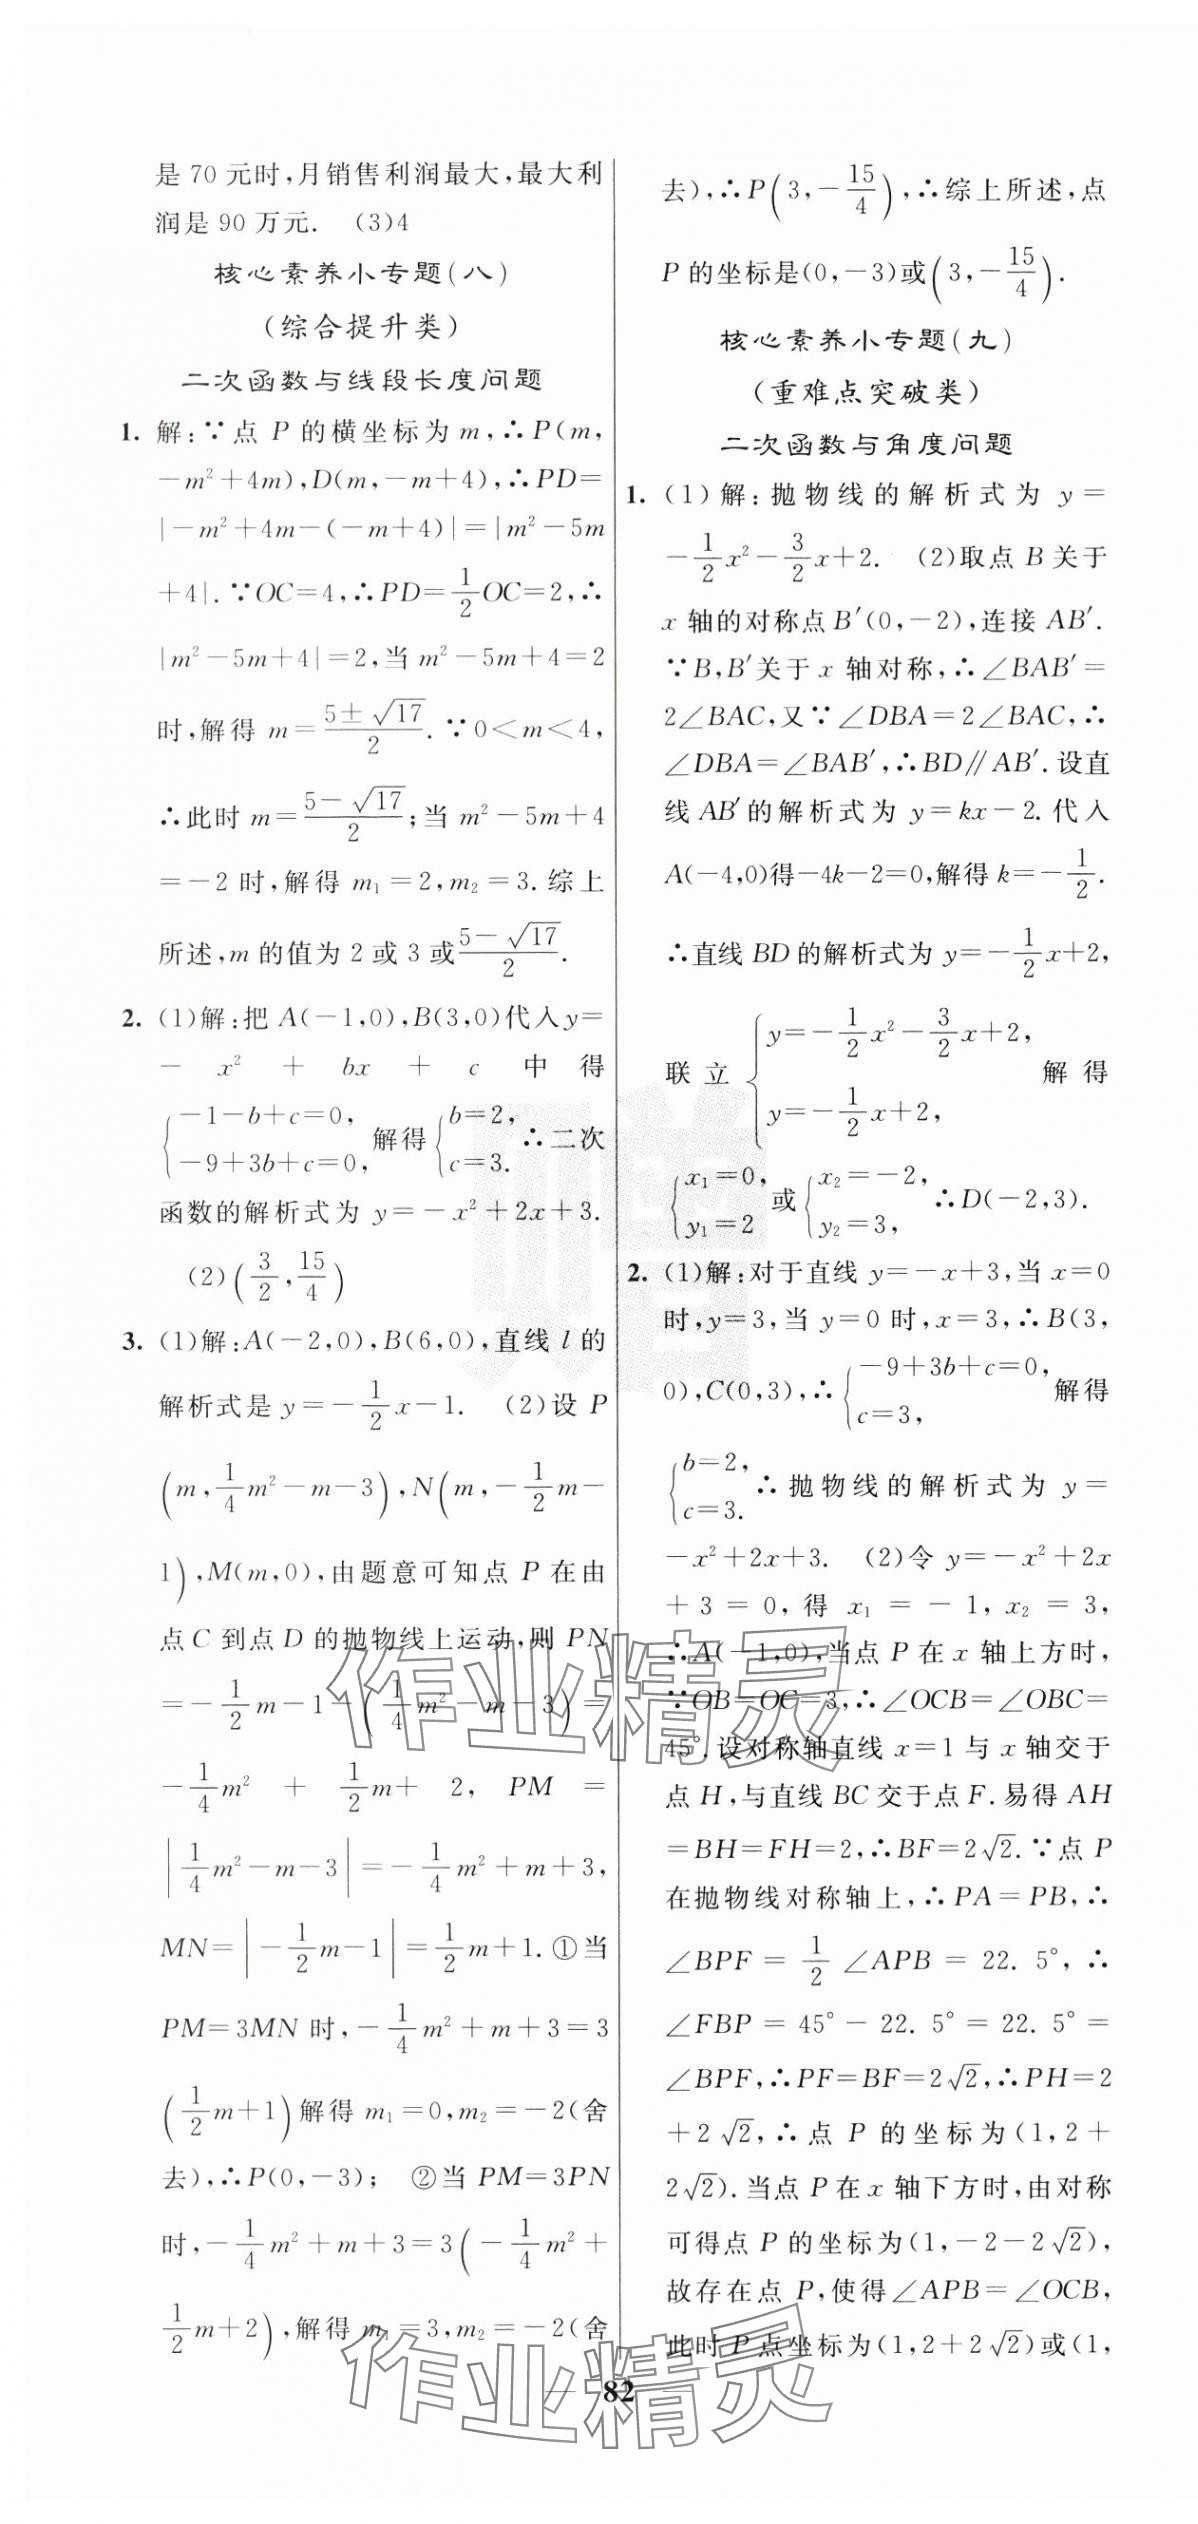 是 70 元时,月销售利润最大,最大利
润是 90 万元. (3)4
核心素养小专题(八)
(综合提升类)
二次函数与线段长度问题
1. 解:∵点 P 的横坐标为 m,∴P(m,
-m²+4m),D(m,-m+4),∴PD=
|-m²+4m-(-m+4)|=|m²-5m
+4|.∵OC=4,∴PD=1/2OC=2,∴
|m²-5m+4|=2,当 m²-5m+4=2
时,解得 m=(5±√17)/2.∵0<m<4,
∴此时 m=(5-√17)/2;当 m²-5m+4
=-2 时,解得 m₁=2,m₂=3.综上
所述,m 的值为 2 或 3 或(5-√17)/2.
2. (1)解:把 A(-1,0),B(3,0)代入y=
- x² + bx + c 中 得
{-1-b+c=0, -9+3b+c=0, 解得{b=2, c=3. ∴二次
函数的解析式为 y=-x²+2x+3.
(2)(3/2,15/4)
3. (1)解:A(-2,0),B(6,0),直线 l 的
解析式是 y=-1/2x-1. (2)设 P
(m,1/4m²-m-3),N(m,-1/2m-
1),M(m,0),由题意可知点 P 在由
点 C 到点 D 的抛物线上运动,则 PN
=-1/2m-1-(1/4m²-m-3)=
-1/4m² + 1/2m+ 2, PM =
|1/4m²-m-3|=-1/4m²+m+3,
MN=|-1/2m-1|=1/2m+1.①当
PM=3MN 时,-1/4m²+m+3=3
(1/2m+1)解得 m₁=0,m₂=-2(舍
去),∴P(0,-3); ②当 PM=3PN
时,-1/4m²+m+3=3(-1/4m²+
1/2m+2),解得 m₁=3,m₂=-2(舍
去),∴P(3,-15/4),∴综上所述,点
P 的坐标是(0,-3)或(3,-15/4).
核心素养小专题(九)
(重难点突破类)
二次函数与角度问题
1. (1)解:抛物线的解析式为 y=
-1/2x²-3/2x+2. (2)取点 B 关于
x 轴的对称点 B′(0,-2),连接 AB′.
∵B,B′关于 x 轴对称,∴∠BAB′=
2∠BAC,又∵∠DBA=2∠BAC,∴
∠DBA=∠BAB′,∴BD∥AB′.设直
线 AB′的解析式为 y=kx-2.代入
A(-4,0)得-4k-2=0,解得 k=-1/2.
∴直线 BD 的解析式为 y=-1/2x+2,
联立{y=-1/2x²-3/2x+2, y=-1/2x+2, 解得
{x₁=0, y₁=2 或{x₂=-2, y₂=3, ∴D(-2,3).
2. (1)解:对于直线 y=-x+3,当 x=0
时,y=3,当 y=0 时,x=3,∴B(3,
0),C(0,3),∴{-9+3b+c=0, c=3, 解得
{b=2, c=3. ∴抛物线的解析式为 y=
-x²+2x+3. (2)令 y=-x²+2x
+3=0,得 x₁=-1,x₂=3,
∴A(-1,0),当点 P 在 x 轴上方时,
∵OB=OC=3,∴∠OCB=∠OBC=
45°.设对称轴直线 x=1 与 x 轴交于
点 H,与直线 BC 交于点 F.易得 AH
=BH=FH=2,∴BF=2√2.∵点 P
在抛物线对称轴上,∴PA=PB,∴
∠BPF = 1/2 ∠APB = 22. 5°, ∴
∠FBP = 45° - 22. 5° = 22. 5° =
∠BPF,∴PF=BF=2√2,∴PH=2
+2√2,∴点 P 的坐标为(1,2+
2√2).当点 P 在 x 轴下方时,由对称
可得点 P 的坐标为(1,-2-2√2),
故存在点 P,使得∠APB=∠OCB,
此时 P 点坐标为(1,2+2√2)或(1,
82
作业精灵
作业精灵